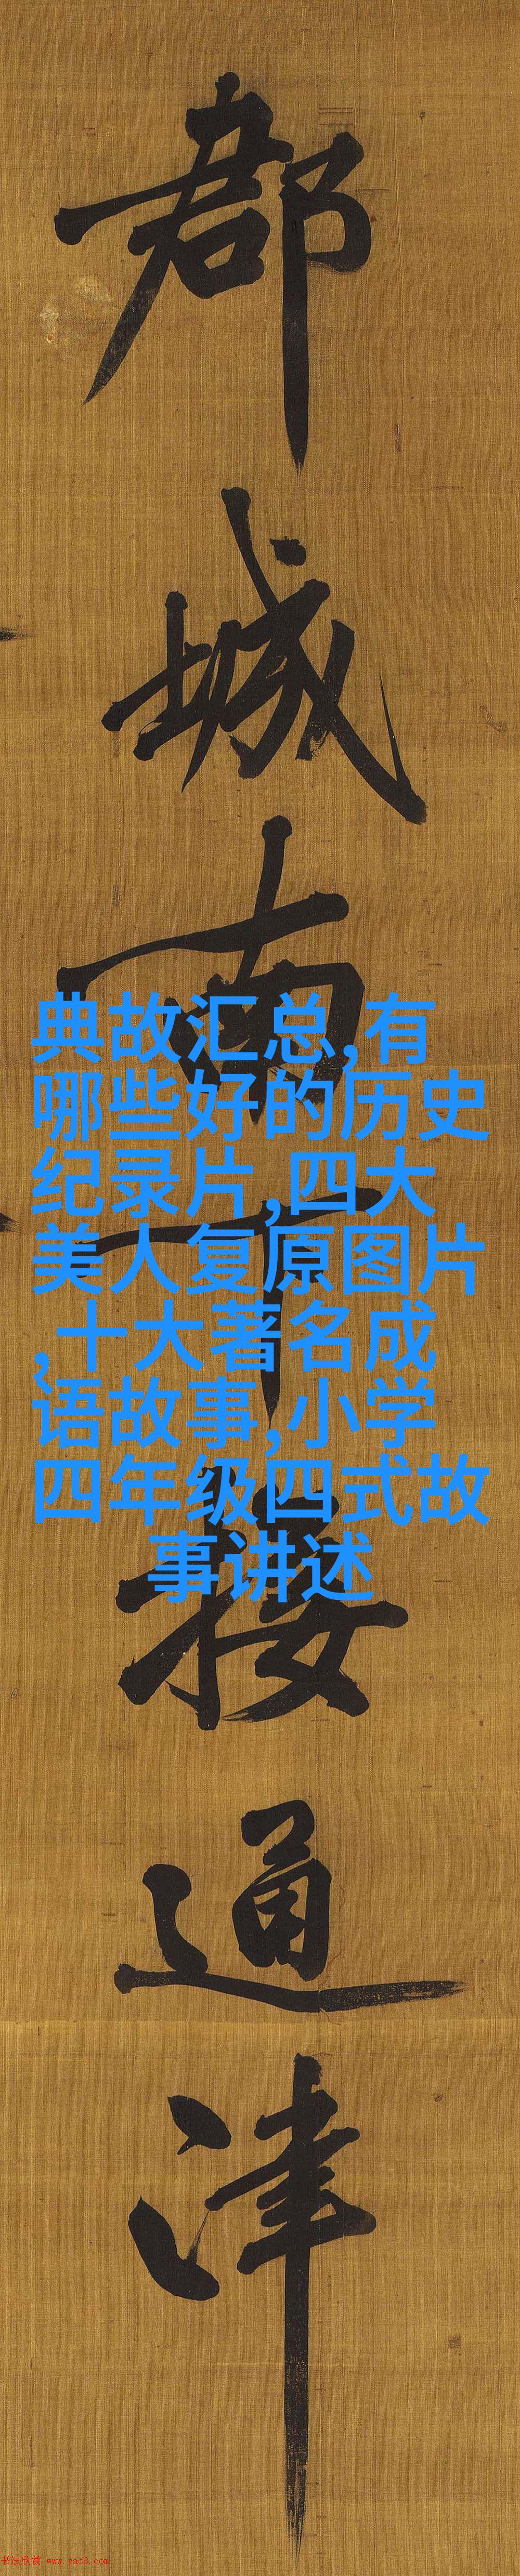 都城南下接通津
典故汇总,有
哪些好的历史
纪录片,四大
美人复原图片
,十大著名成
语故事,小学
四年级四式故
事讲述
书法欣赏 www.yac8.com